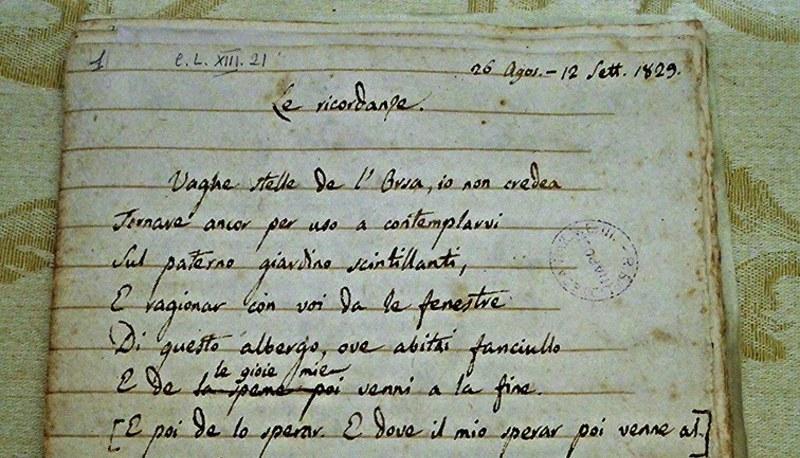 1 C. L. XIII. 21
26 Agos. - 12 Sett. 1829.
Le ricordanze.
Vaghe stelle de l' Orsa, io non credea
Tornare ancor per uso a contemplarvi
Sul paterno giardino scintillanti,
E ragionar con voi da le fenestre
Di questo albergo, ove abitai fanciullo
le gioie mie
E de la speme poi venni a la fine.
[E poi de lo sperar. E dove il mio sperar poi venne al.]